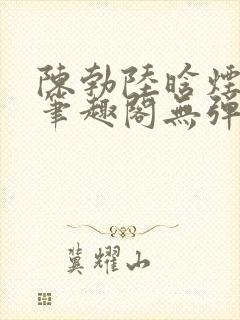 陳勃陸晗煙
筆趣閣無彈
冀耀山